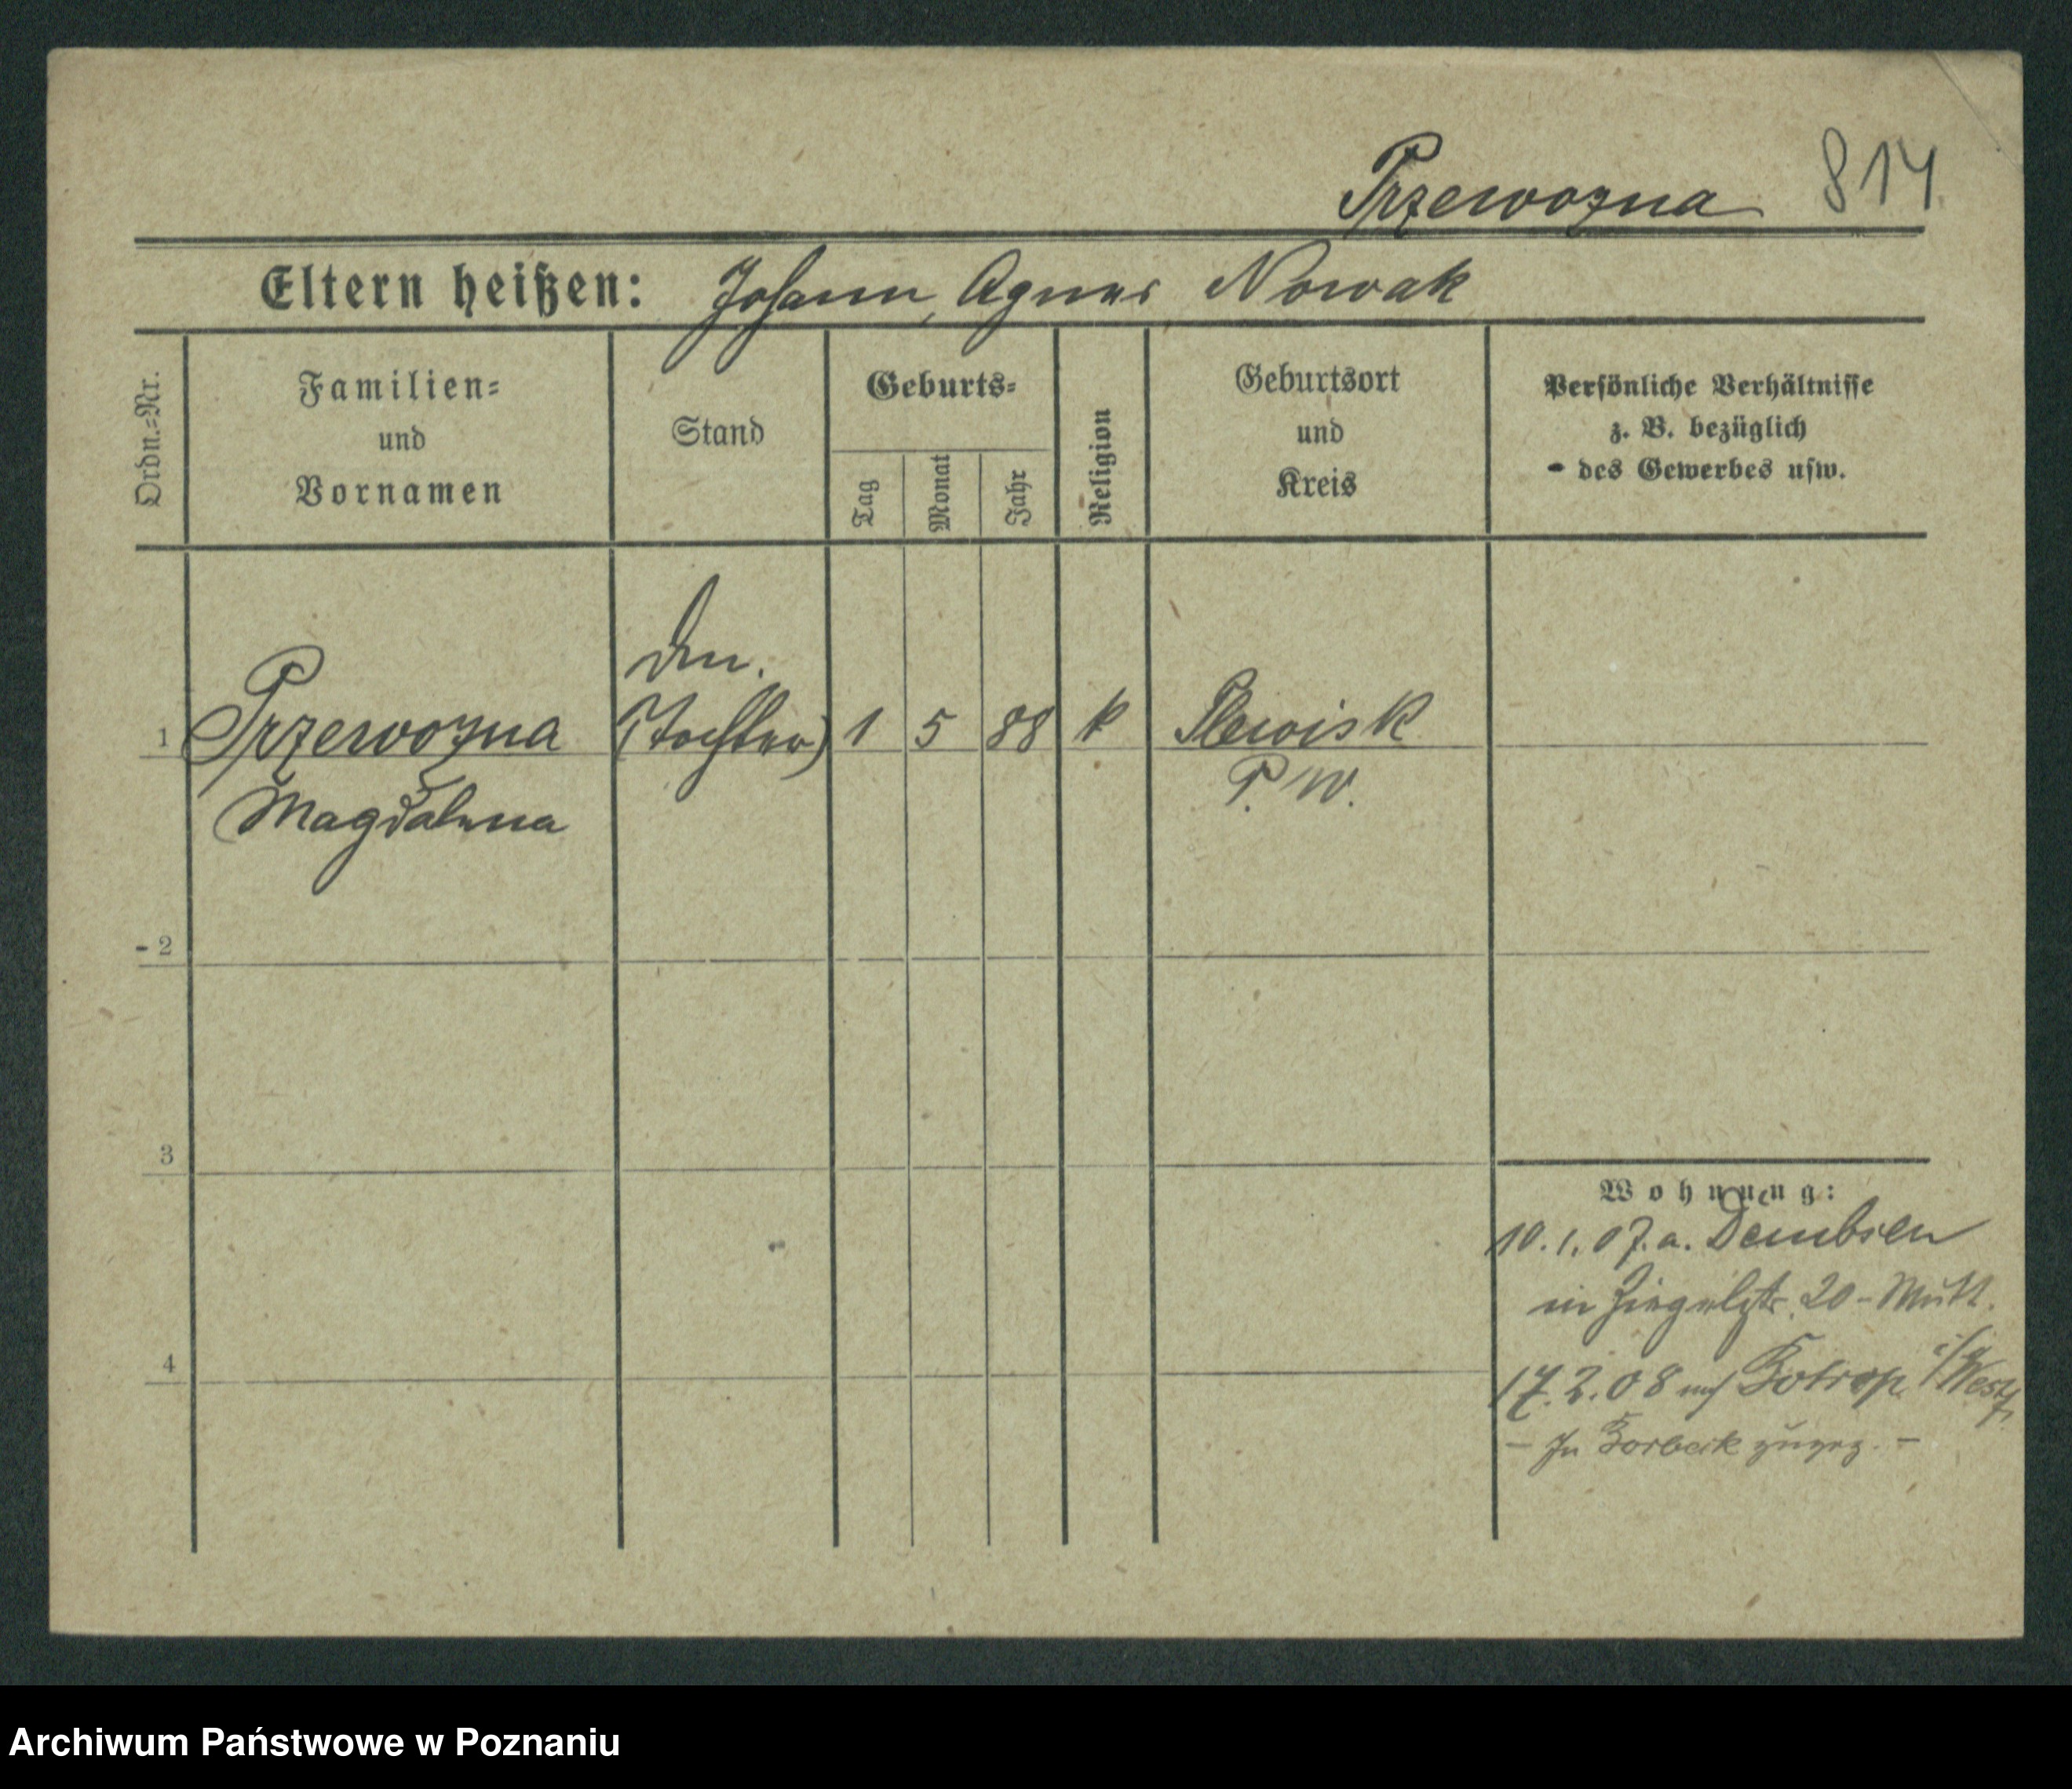 Przewozna 814
Eltern heißen: Johann, Agnes Nowak
Ordn.=Nr.
Familien=
und
Vornamen
Stand
Geburts=
Tag
Monat
Jahr
Religion
Geburtsort
und
Kreis
Persönliche Verhältnisse
z. B. bezüglich
des Gewerbes usw.
1 Przewozna (Tochter) 1 5 88 k Plewisk
Magdalena P. W.
2
3
4
Wohnung:
10.1.07. a. Dembsen
in Ziegelstr. 20 - Mutt.
17.2.08 nch Botrop i/Westf.
- In Borbeck zugez. -
Archiwum Państwowe w Poznaniu